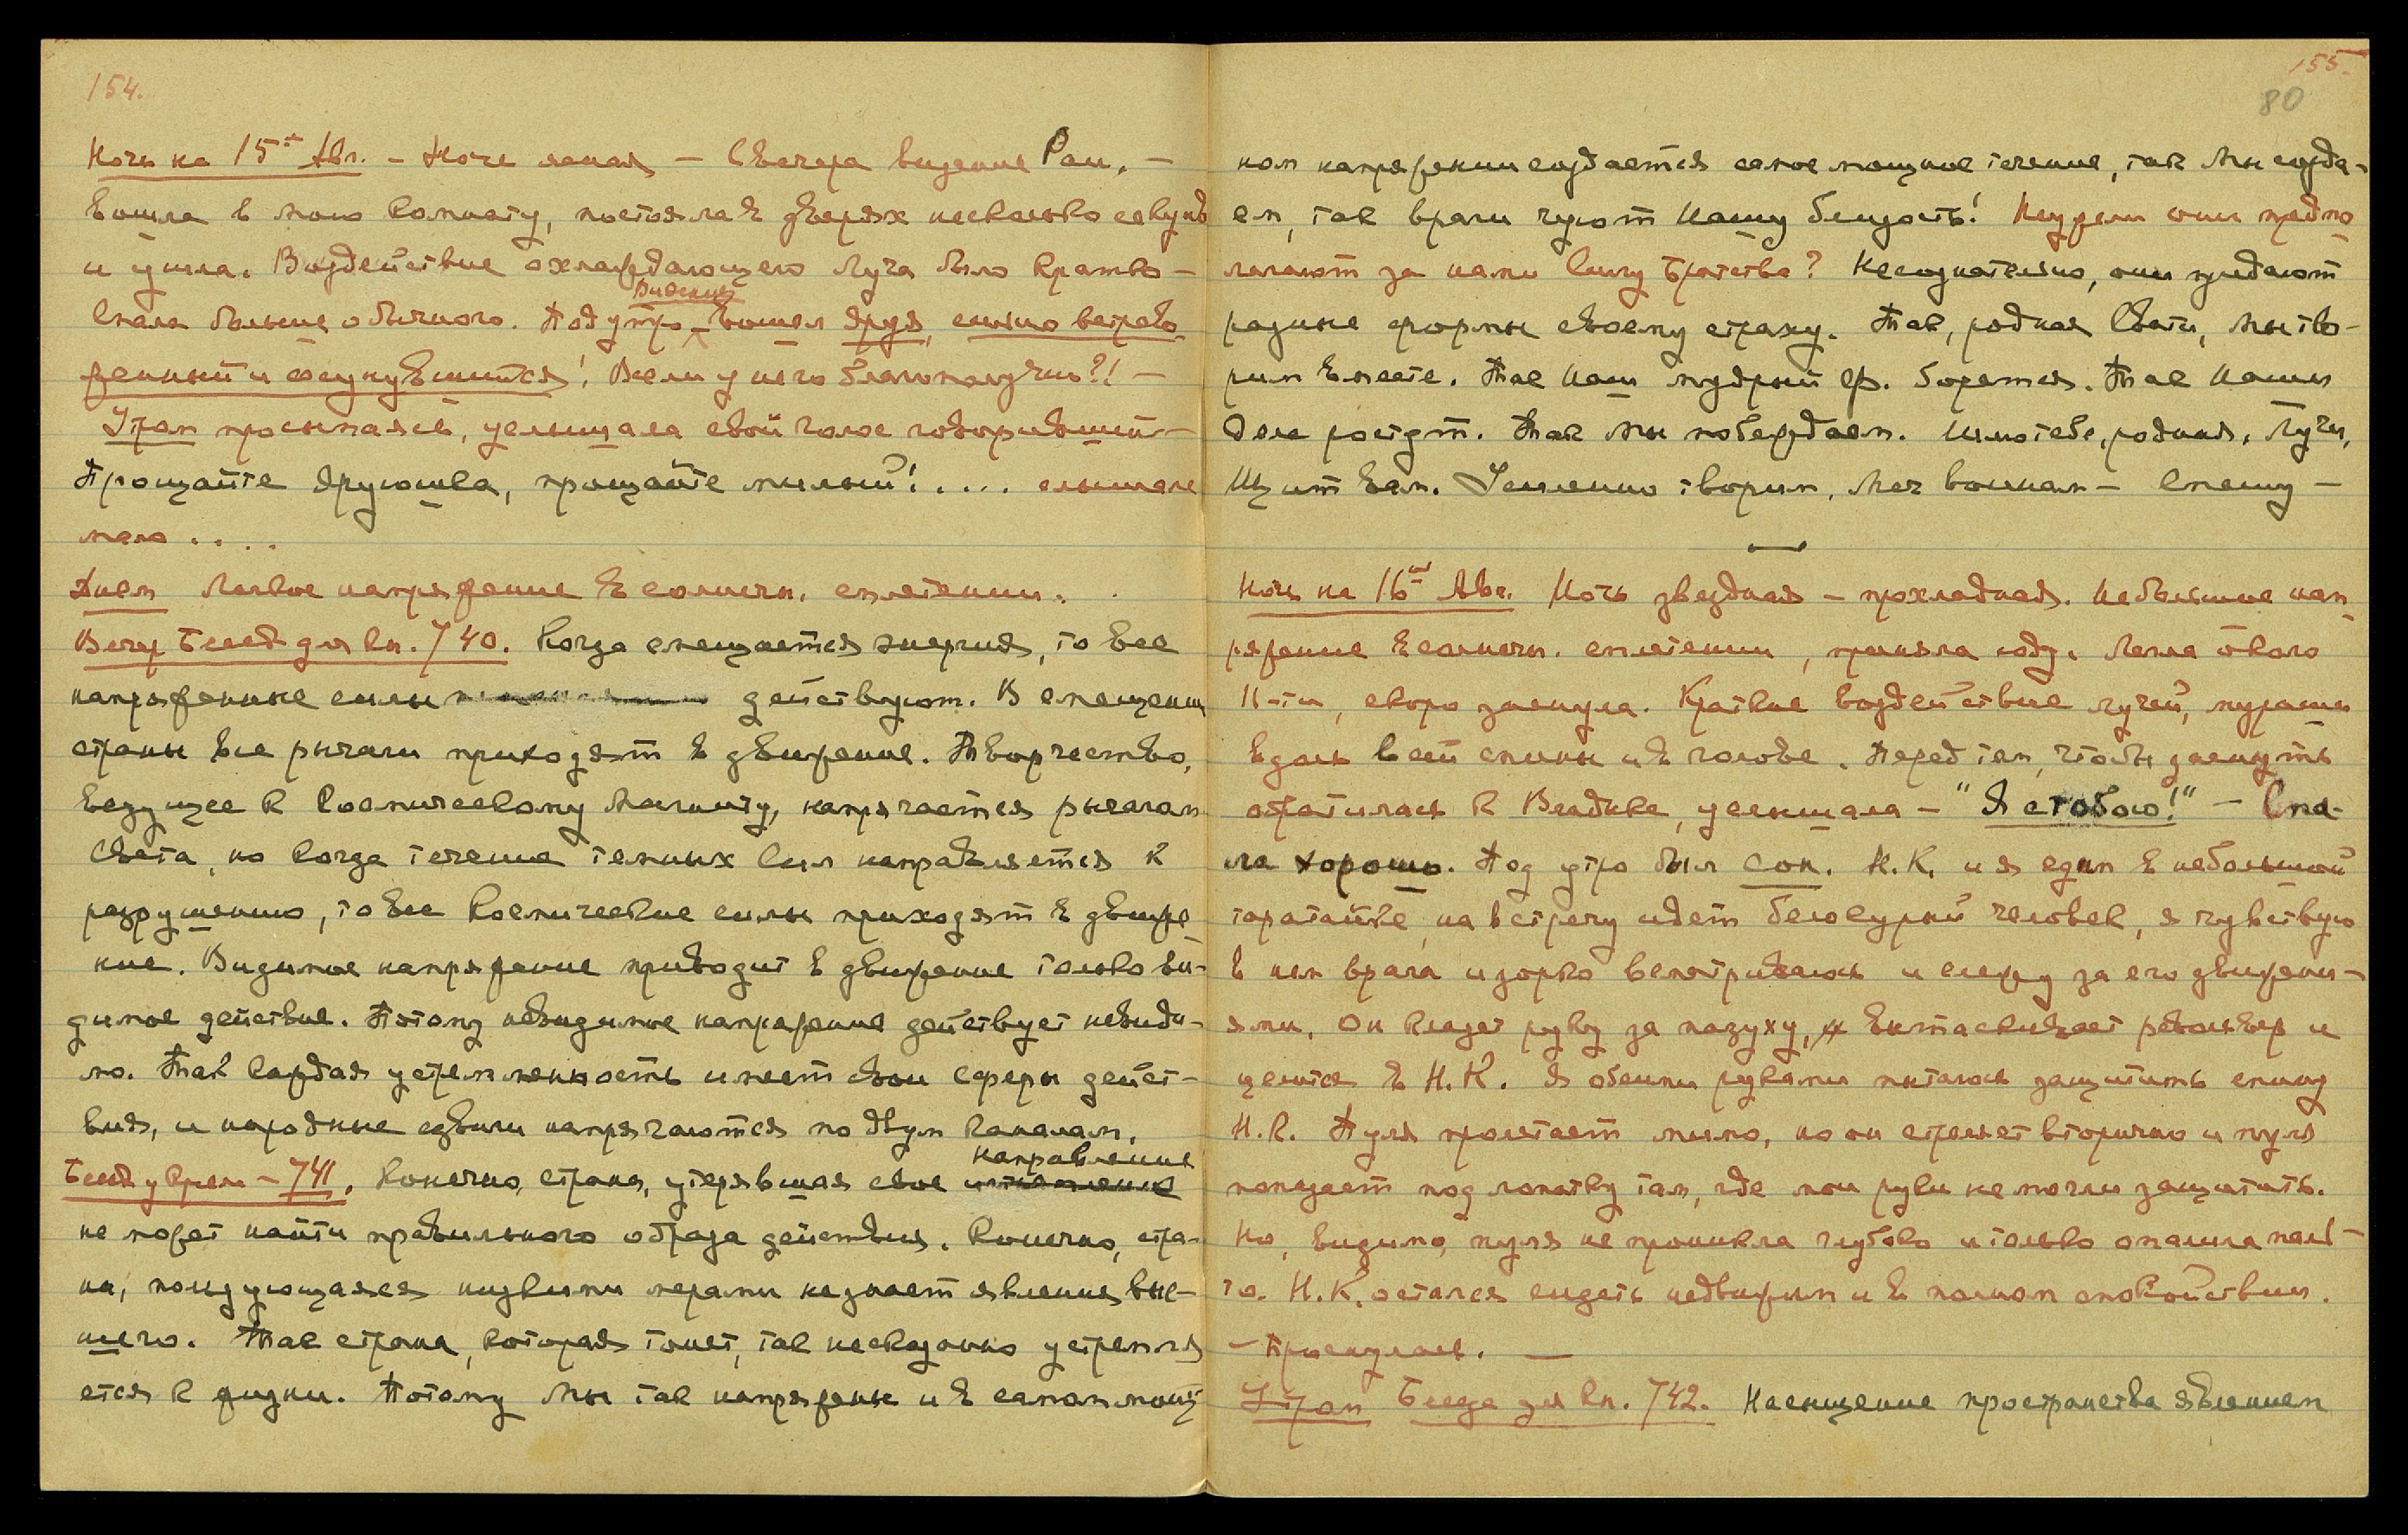 154.
Ночь на 15ое Авг. – Ночь ясная – С вечера видение Раи, –
вошла в мою комнату, постояла в дверях несколько секунд
и ушла. Воздействие охлаждающего Луча было кратко –
Видение
Спала больше обычного. Под утро – вошел Друг, сильно встрево
женный и осунувшийся! Все ли у него благополучно?! –
Утром просыпаясь, услышала свой голос говоривший –
Прощайте Друюшка, прощайте милый! .... слышала
мало ....
Днем легкое напряжение в солнечн. сплетении.
Вечер Беседа для кн. 740. Когда смещается энергия, то все
напряженные силы действуют. В смещении
страны все рычаги приходят в движение. Творчество,
ведущее к Космическому Магниту, напрягается рычагом
Света, но когда течение темных Сил направляется к
разрушению, то все Космические силы приходят в движе
ние. Видимое напряжение приводит в движение только ви-
димое действие. Потому невидимое напряжение действует невиди-
мо. Так каждая устремленность имеет свои сферы дейст-
вия, и народные сдвиги напрягаются по двум каналам.
направление
Беседа у Врем – 741. Конечно, страна, утерявшая свое
не может найти правильного образа действия. Конечно, стра-
на, пользующаяся низкими мерами не знает явления выс-
шего. Так страна, которая тонет, так несказанно устремля
ется к жизни. Потому Мы так напряжены и в самом мощ
155.
80
ном напряжении создается самое мощное течение, так Мы созда-
ем, так враги чуют Нашу близость! Неужели они предпо
лагают за нами Силу Братства? Несознательно, они придают
разные формы своему страху. Так, родная Свати, Мы тво-
рим вместе. Так Наш мудрый Ф. борется. Так Наши
Дела растут. Так Мы побеждаем. Шлю тебе, родная, Лучи,
Щит Вам. Усиленно творим, Меч воинам – Спешу –
Ночь на 16ое Авг. Ночь звездная – прохладная. Небольшое нап
ряжение в солнечн. сплетении, приняла соду. Легла около
11-ти, скоро заснула. Краткое воздействие лучей, мураши
вдоль всей спины и в голове. Перед тем, чтобы заснуть
обратилась к Владыке, услышала – "Я с тобою!" – Спа-
ла хорошо. Под утро был сон. Н.К. и я едим в небольшой
таратайке, на встречу идет белокурый человек, я чувствую
в нем врага и зорко всматриваюсь и слежу за его движени-
ями. Он кладет руку за пазуху, и вытаскивает револьвер и
целится в Н.К. Я обеими руками пытаюсь защитить спину
Н.К. Пуля пролетает мимо, но он стреляет вторично и пуля
попадает под лопатку там, где мои руки не могли защитить.
Но, видимо, пуля не проникла глубоко и только опалила паль-
то. Н.К. остался сидеть недвижим и в полном спокойствии.
– Проснулась. –
Утром Беседа для кн. 742. Насыщение пространства явлением